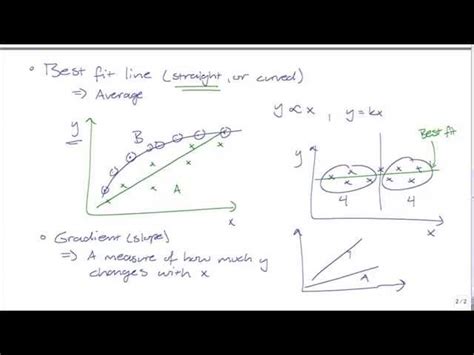 • Best fit line (straight, or curved)
⇒ Average
y ∝ x , y = kx
y
B
A
x
Best fit
y
4
4
x
• Gradient (slope)
⇒ A measure of how much y
changes with x
A
2 / 2